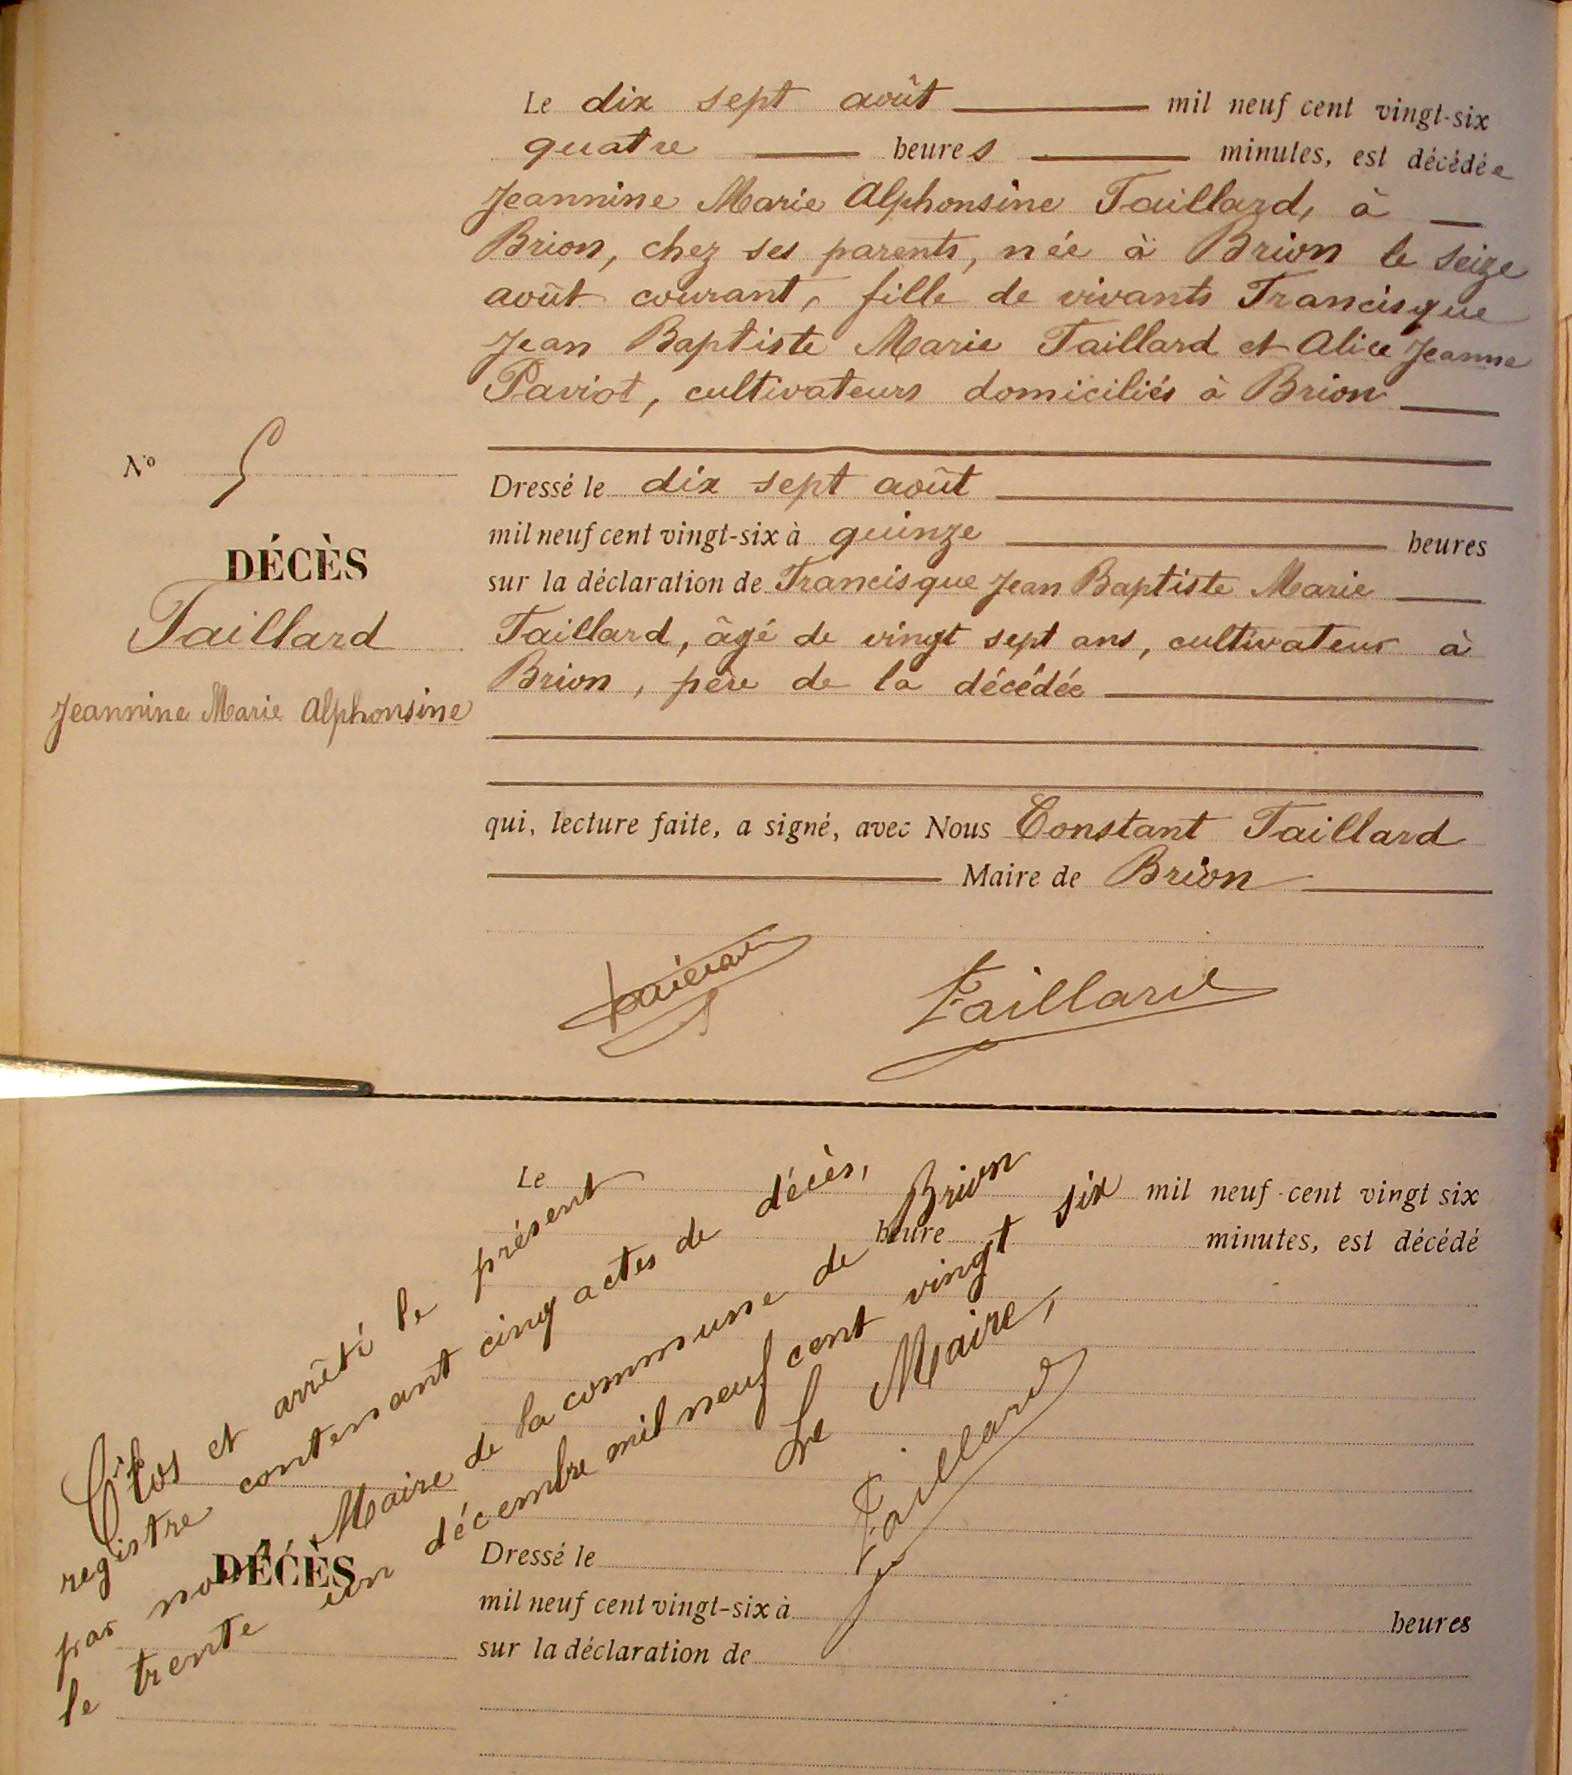 Le dix sept août mil neuf cent vingt-six
quatre heures minutes, est décédée
Jeannine Marie Alphonsine Taillard, à
Brion, chez ses parents, née à Brion le seize
août courant, fille de vivants Francisque
Jean Baptiste Marie Taillard et Alice Jeanne
Paviot, cultivateurs domiciliés à Brion
N° 5
DÉCÈS
Taillard
Jeannine Marie Alphonsine
Dressé le dix sept août
mil neuf cent vingt-six à quinze heures
sur la déclaration de Francisque Jean Baptiste Marie
Taillard, âgé de vingt sept ans, cultivateur à
Brion, père de la décédée
qui, lecture faite, a signé, avec Nous Constant Taillard
Maire de Brion
Taillard
Taillard
Le mil neuf cent vingt six
heure minutes, est décédé
Clos et arrêté le présent
registre contenant cinq actes de décès,
par nous, Maire de la commune de Brion
le trente un décembre mil neuf cent vingt six
Le Maire,
Taillard
N°
DÉCÈS
Dressé le
mil neuf cent vingt-six à heures
sur la déclaration de